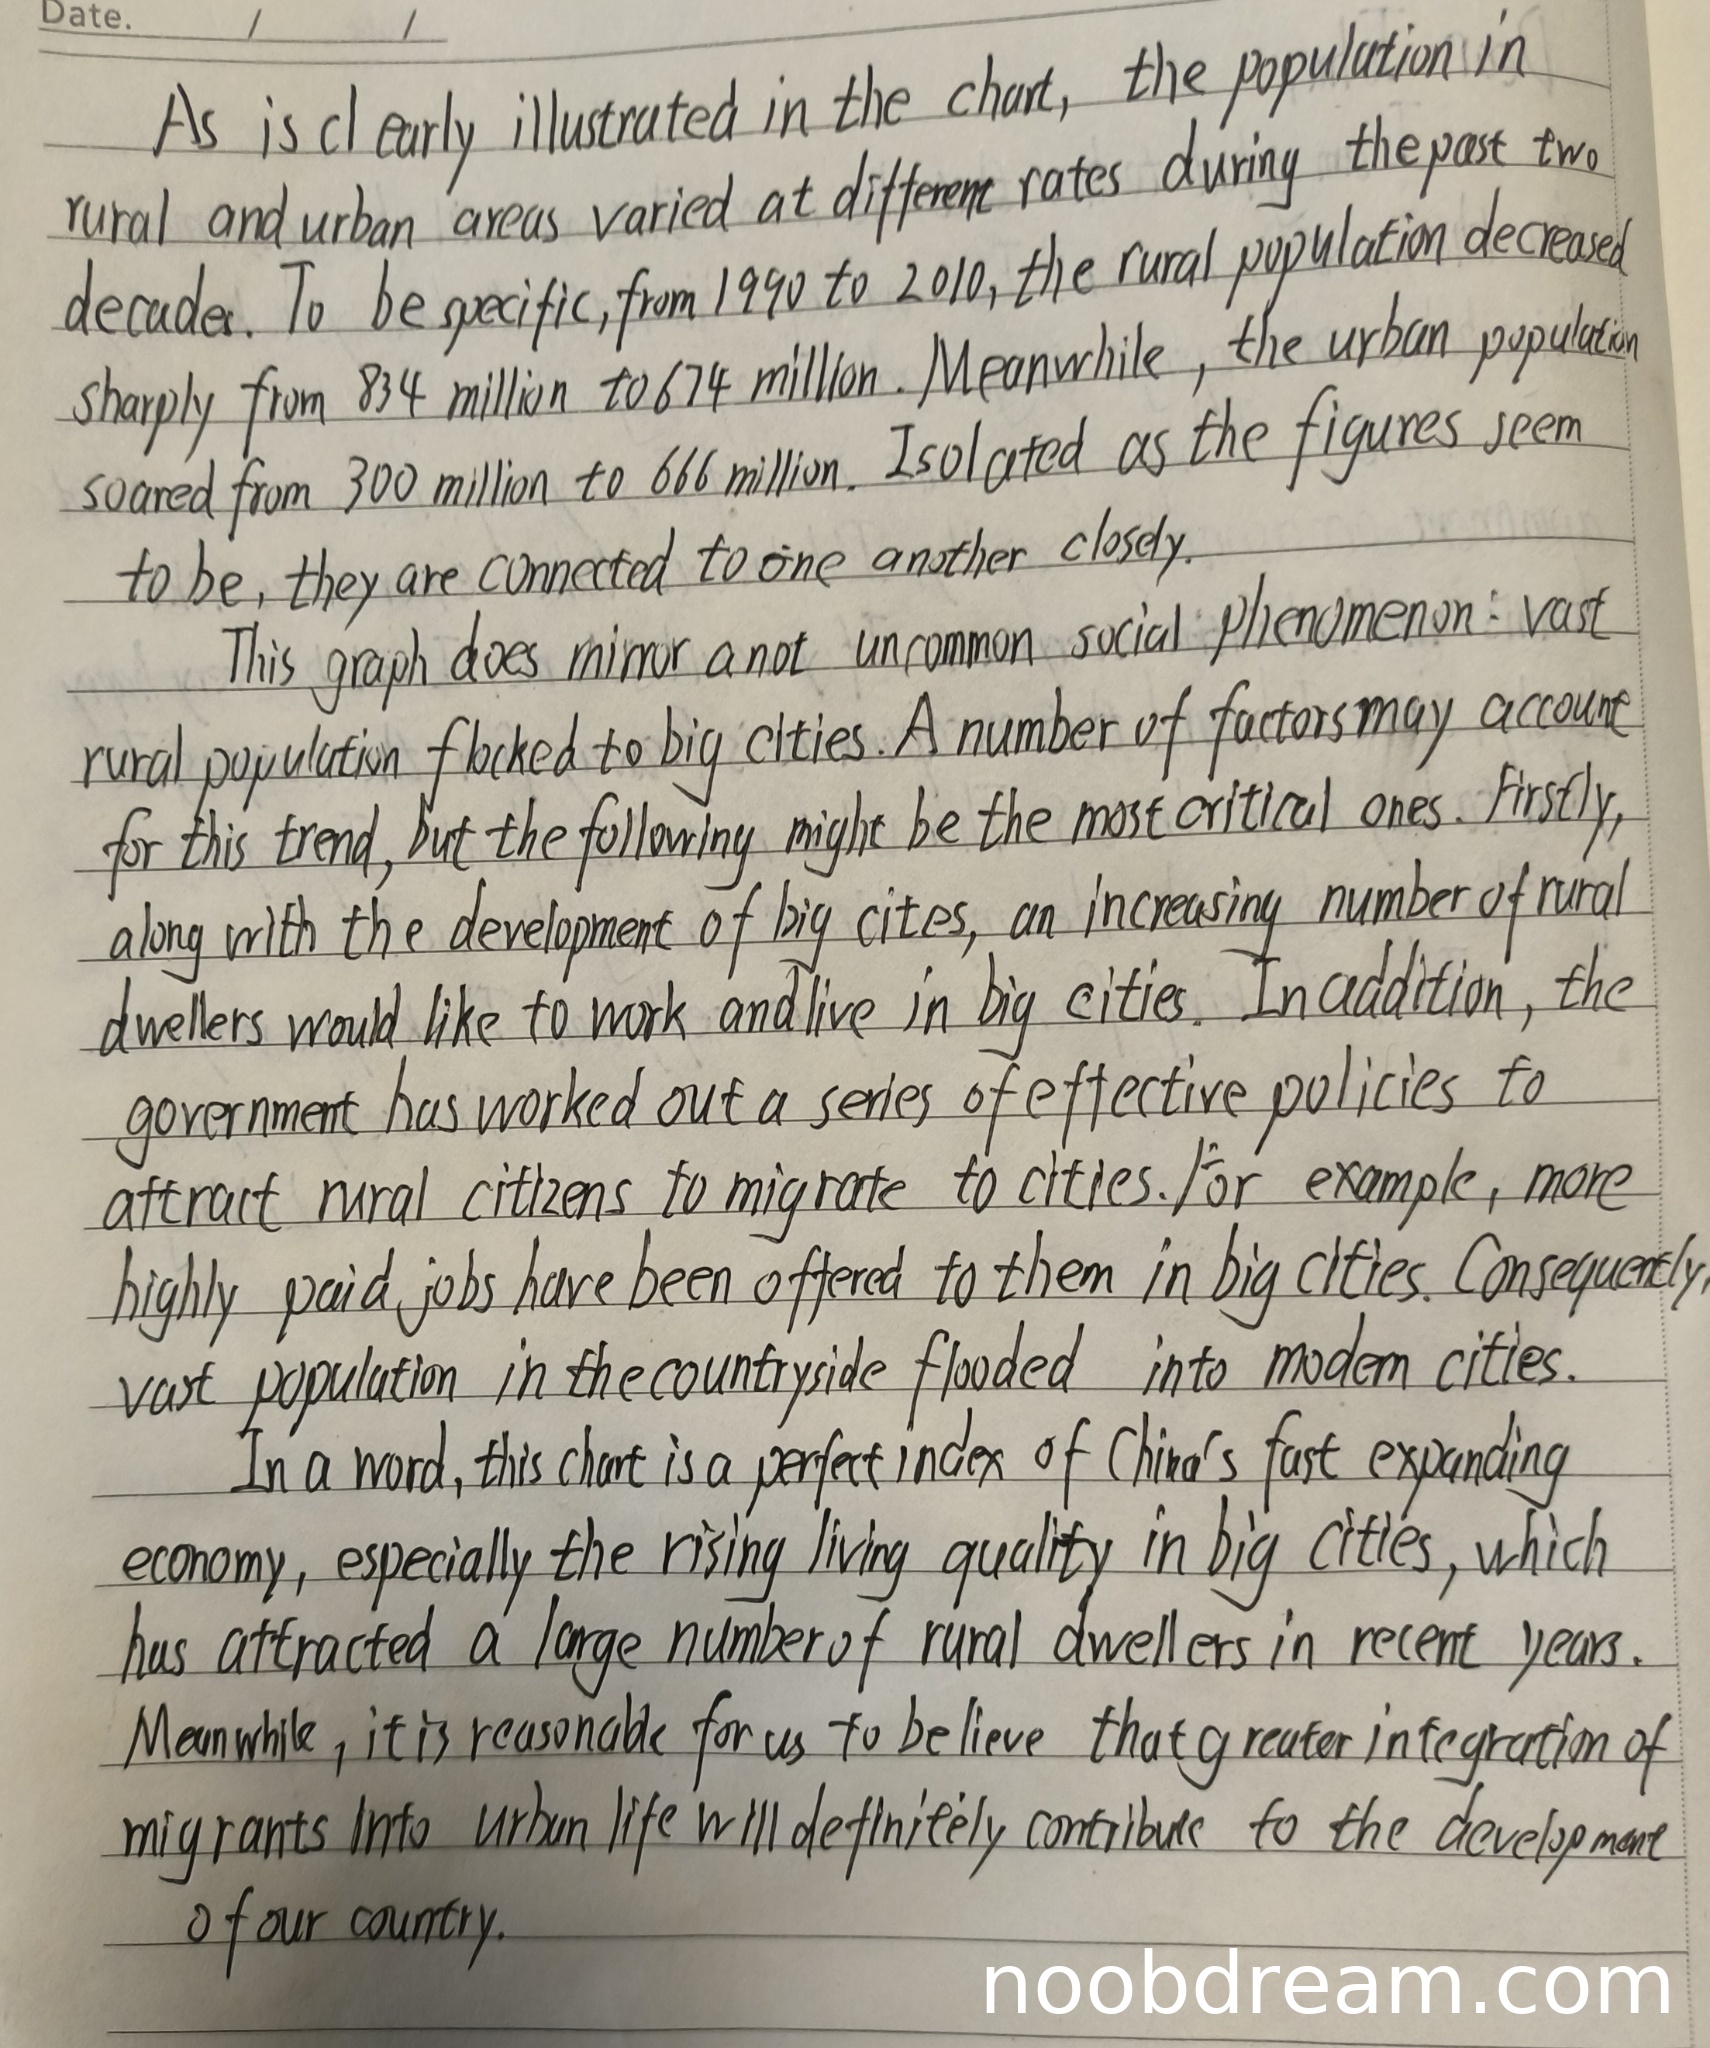 Date. / /
As is clearly illustrated in the chart, the population in
rural and urban areas varied at different rates during the past two
decades. To be specific, from 1990 to 2010, the rural population decreased
sharply from 834 million to 674 million. Meanwhile, the urban population
soared from 300 million to 666 million. Isolated as the figures seem
to be, they are connected to one another closely.
This graph does mirror a not uncommon social phenomenon: vast
rural population flocked to big cities. A number of factors may account
for this trend, but the following might be the most critical ones. Firstly,
along with the development of big cites, an increasing number of rural
dwellers would like to work and live in big cities. In addition, the
government has worked out a series of effective policies to
attract rural citizens to migrate to cities. For example, more
highly paid jobs have been offered to them in big cities. Consequently,
vast population in the countryside flooded into modern cities.
In a word, this chart is a perfect index of China's fast expanding
economy, especially the rising living quality in big cities, which
has attracted a large number of rural dwellers in recent years.
Meanwhile, it is reasonable for us to believe that greater integration of
migrants into urban life will definitely contribute to the development
of our country.
noobdream.com